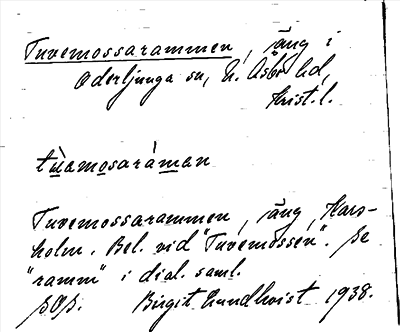 Tuvemossarammen, äng i
Oderljunga sn, N. Åsbo hd,
Krist. l.
tùamosaráman
Tuvemossarammen, äng, Kars-
holm. Bel. vid "Tuvemossen". Se
"ramm" i dial. saml.
Birgit Lundkvist 1938.